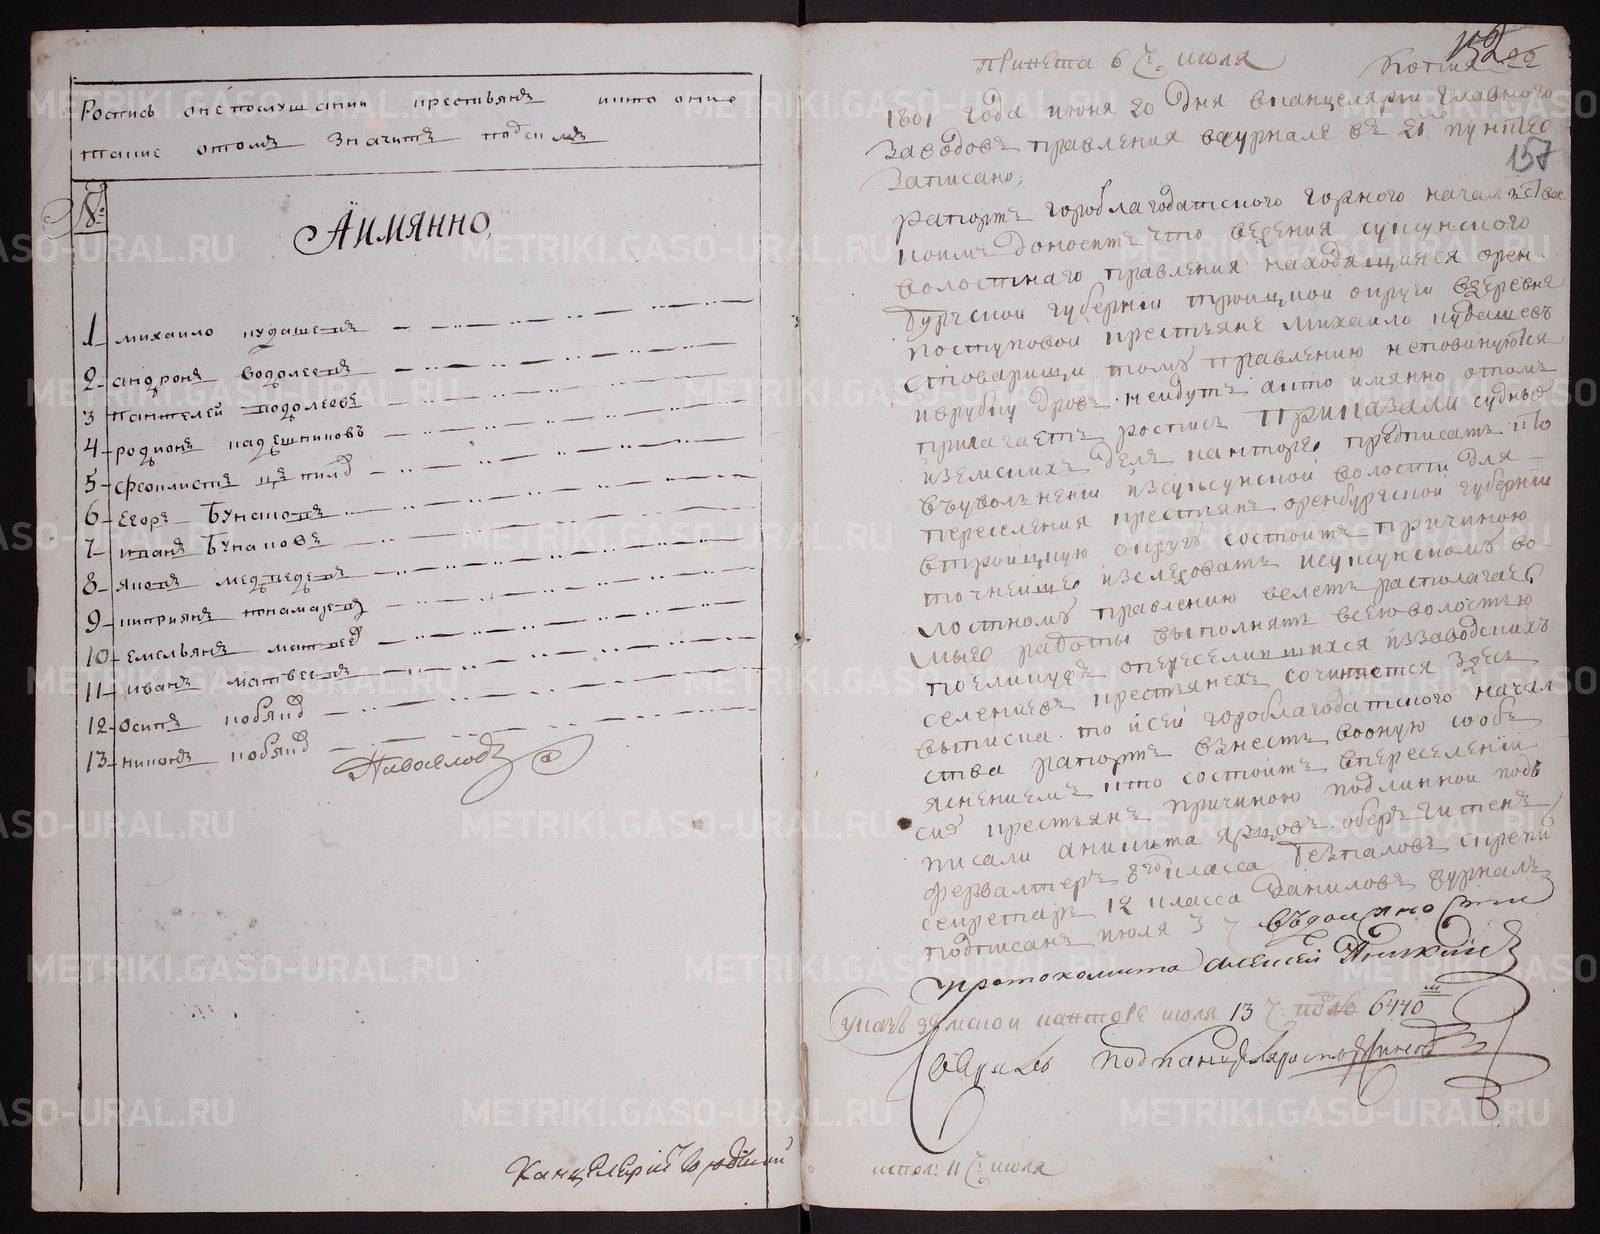 Роспись онепослушании крестьянъ ктоо оние
такие отомъ значитъ подсимъ
№
Аимянно,
1 михаило кудашевъ
2 андронъ водолеевъ
3 пантелей водолеевъ
4 родионъ кадешниковъ
5 феоклистъ
6 Егоръ Бунаковъ
7 иванъ Бунаковъ
8 яковъ медведевъ
9 киприянъ понамаревъ
10 емельянъ матвеев
11 иванъ матвеевъ
12 осипъ кобяков
13 никонъ кобяков
Канцелерист
152
принета 6 ч. июля
Копия 22
1801 года июня 20 дня вканцелярии главного
заводовъ правления вжурнале въ 21 пункте
157
записано,
рапортъ гороблагодатского горного началства
коимъ доноситъ что ведения суксунского
волостнаго правления находящияся орен
бургской губернии троицкой округи вдеревне
поступовой крестьяне михаило кудашевъ
стоварищи тому правлению неповинуются
иврубку дровъ неидутъ акто имянно отомъ
прилагаетъ роспись приказали судныхъ
иземскихъ делъ канторе предписать что
въуволнении изсуксунской волости для
переселения крестьянъ оренбургской губернии
втроицкую округъ состоитъ причиною
точнейше изследовать исуксунскому во
лостному правлению велеть располагае
мые работы выполнять всею волостью
поеликуже опереселившихся иззаводскихъ
селениевъ крестьянехъ сочиняется здесь
выписка то исей гороблагодатского начал
ства рапортъ взнесть воную сообъ
яснениемъ кто состоитъ впереселении
сих крестьянъ причиною подлинной подъ
писали аникита ярцовъ оберъ гитенъ
фервалтеръ 8го класса безпаловъ скрепил
секретарь 12 класса даниловъ журналъ
подписанъ июля 3 ч
протоколиста алексей
указъ земской канторе июля 13 ч. подъ 6440
подканцеляристъ
испол: 11 ч: июля
METRIKI.GASO-URAL.RU